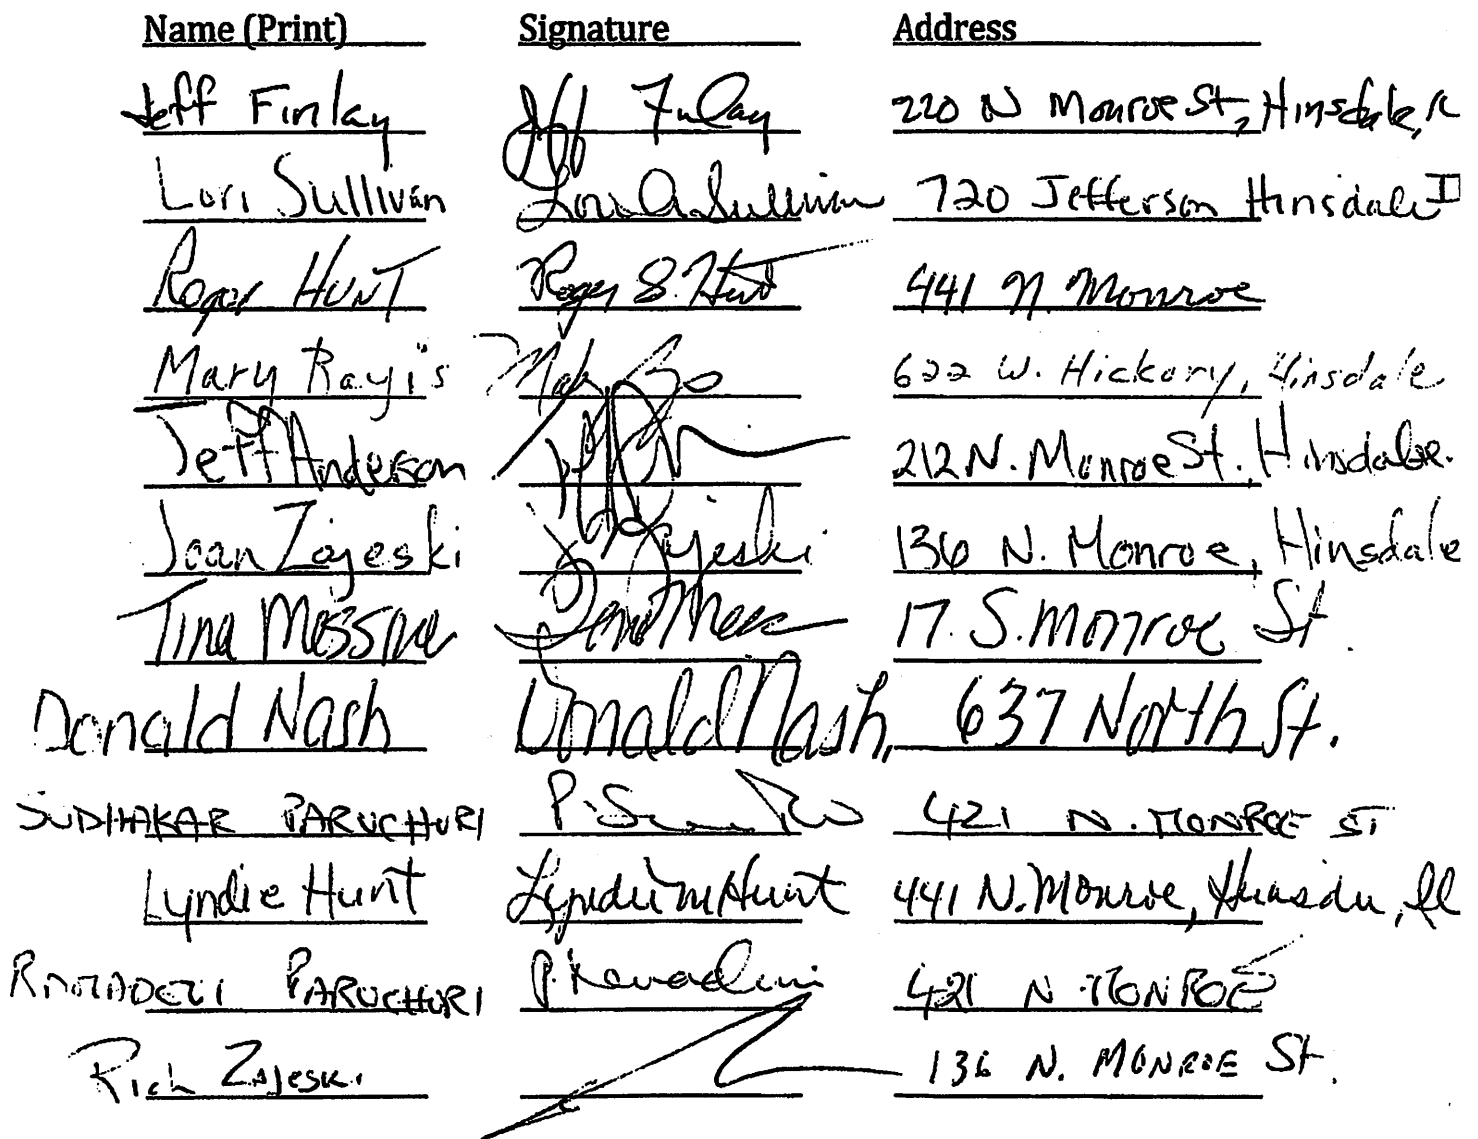 Name (Print) Signature Address
Jeff Finlay Jeff Finlay 220 N Monroe St, Hinsdale, IL
Lori Sullivan Lori A. Sullivan 720 Jefferson Hinsdale I
Roger HUNT Roger S. Hunt 441 N. Monroe
Mary Rayis 622 W. Hickory, Hinsdale
Jeff Anderson 212 N. Monroe St. Hinsdale.
Joan Zajeski J Zajeski 136 N. Monroe, Hinsdale
Tina 17 S. Monroe St.
Donald Nash Donald Nash, 637 North St.
SUDHAKAR PARUCHURI 421 N. MONROE ST
Lyndie Hunt Lyndie M Hunt 441 N. Monroe,
RAMADEVI PARUCHURI 421 N MONROE
Rich Zajeski 136 N. MONROE St.